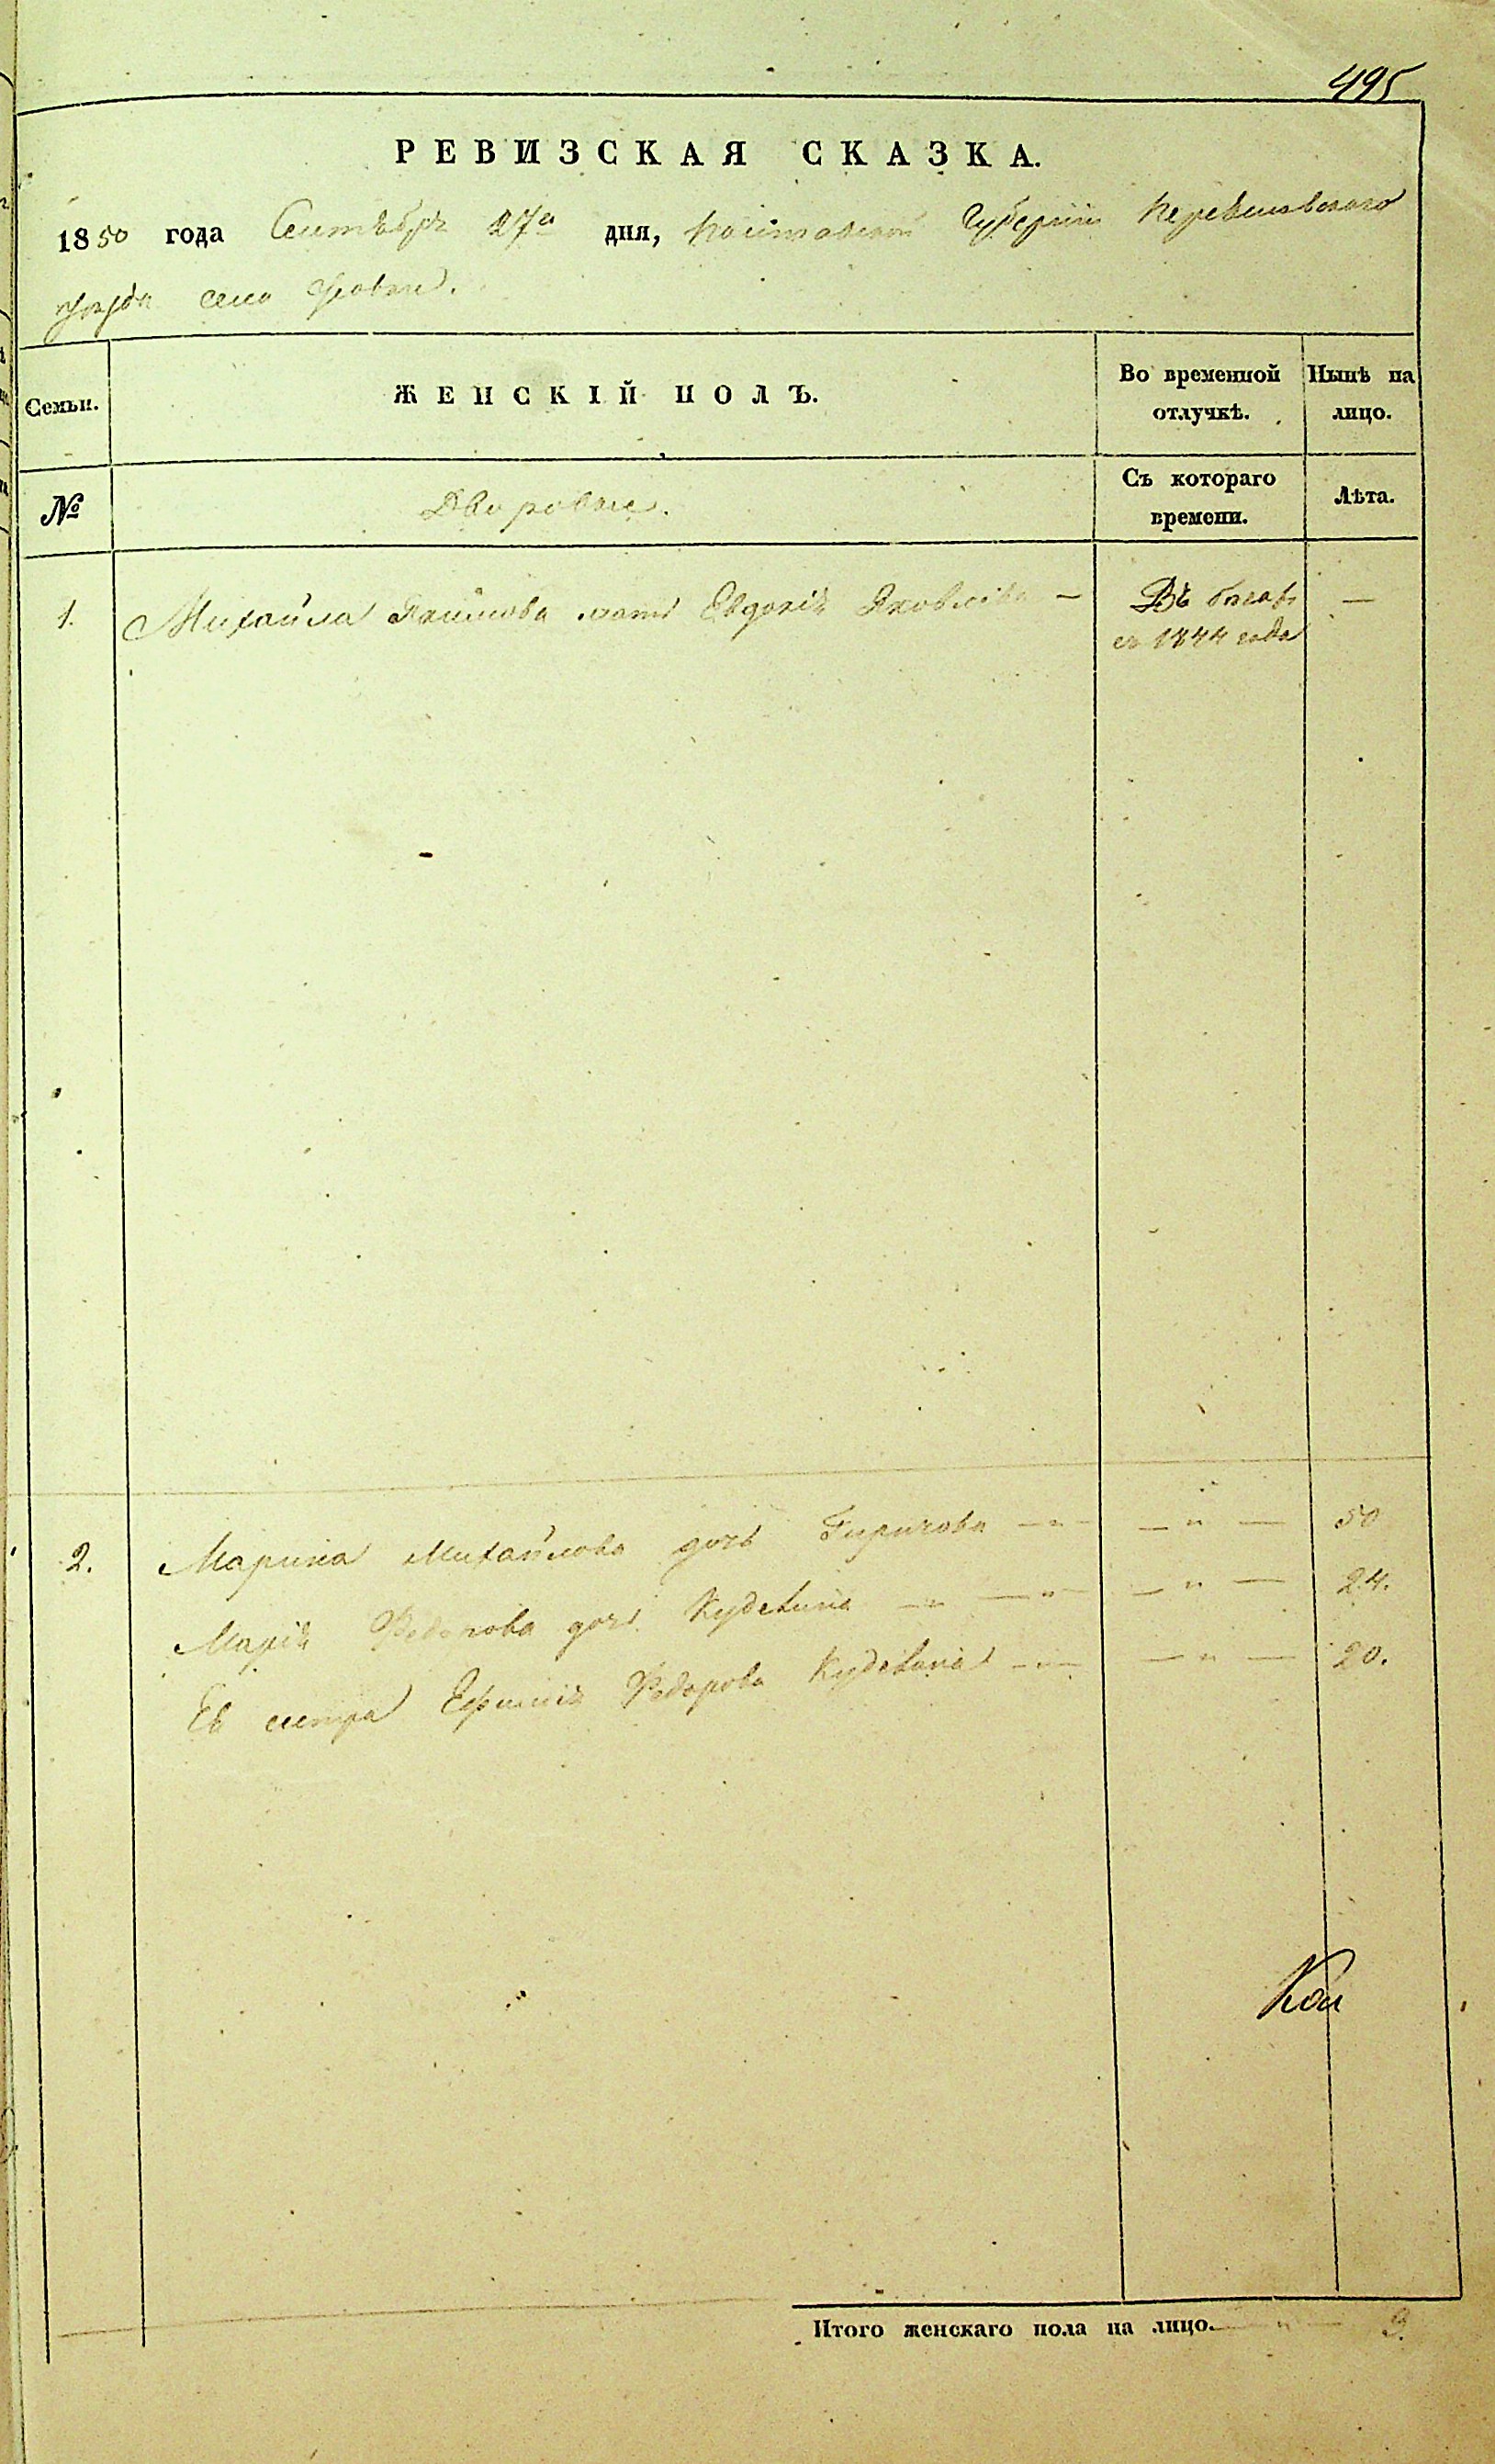 495
РЕВИЗСКАЯ СКАЗКА.
1850 года Сентября 27го дня, Полтавской Губерніи
уезда село
Семьи.
ЖЕНСКІЙ ПОЛЪ.
Во временной отлучкѣ.
Нынѣ на лицо.
№
Дворовые.
Съ котораго времени.
Лѣта.
1. Михайла мать Евдокія Яковлева — Въ бегахъ —
съ 1844 года
2. Марина Михайлова дочь — „ — — „ — 50
Марія Федорова дочь — „ — „ — — „ — 24.
Её сестра Ефимія Федорова — „ — — „ — 20.
Итого женскаго пола на лицо. — „ — 3.